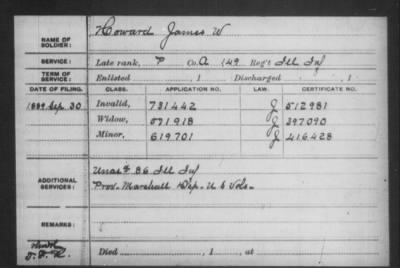 NAME OF SOLDIER: Howard James W
SERVICE: Late rank, P Co. A 149 Reg't Ill Inf
TERM OF SERVICE: Enlisted , 1 Discharged , 1
DATE OF FILING. CLASS. APPLICATION NO. LAW. CERTIFICATE NO.
1889 Sep. 30 Invalid, 731442 J 512981
Widow, 571918 J 397090
Minor, 619701 J 416428
ADDITIONAL SERVICES: Unas'd 86 Ill Inf
Prov. Marshall Dep. U S Vols.
REMARKS:
Died , 1 , at